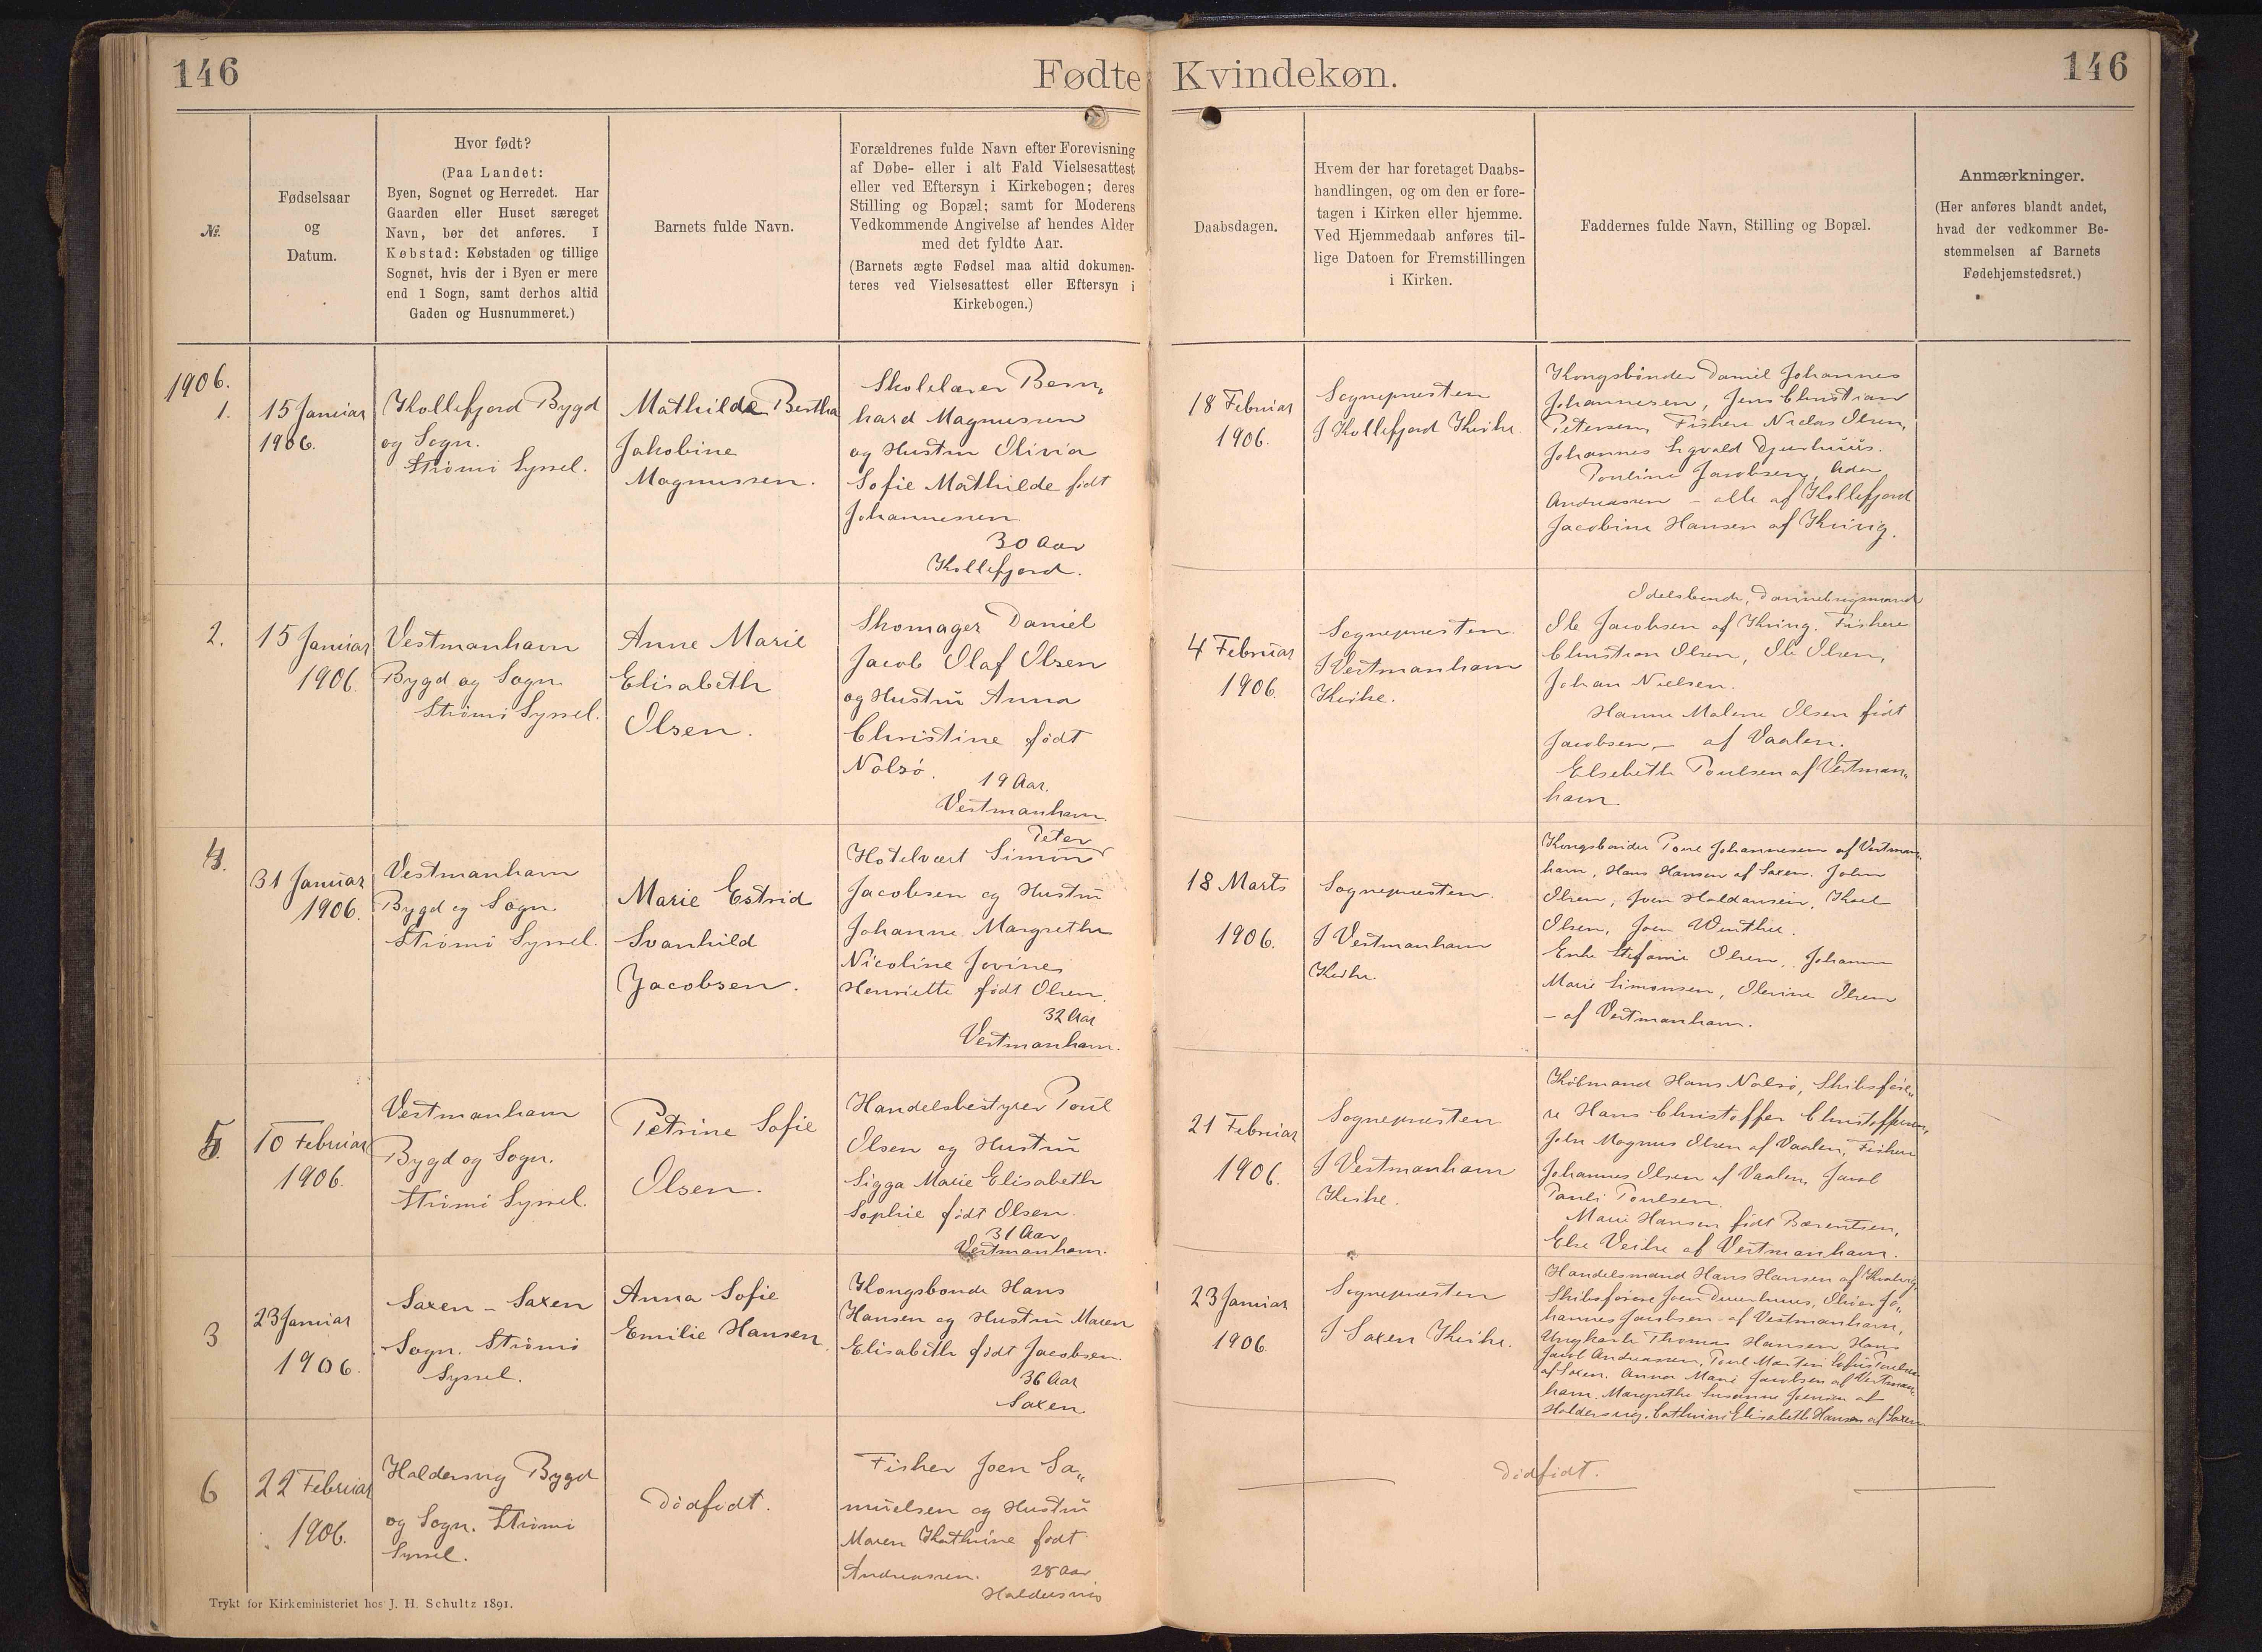 146
Fødte
Kvindekøn.
146
№.
Fødselsaar
og
Datum.
Hvor født?
(Paa Landet:
Byen, Sognet og Herredet. Har
Gaarden eller Huset særeget
Navn, bør det anføres. I
Købstad: Købstaden og tillige
Sognet, hvis der i Byen er mere
end 1 Sogn, samt derhos altid
Gaden og Husnummeret.)
Barnets fulde Navn.
Forældrenes fulde Navn efter Forevisning
af Døbe- eller i alt Fald Vielsesattest
eller ved Eftersyn i Kirkebogen; deres
Stilling og Bopæl; samt for Moderens
Vedkommende Angivelse af hendes Alder
med det fyldte Aar.
(Barnets ægte Fødsel maa altid dokumen-
teres ved Vielsesattest eller Eftersyn i
Kirkebogen.)
Daabsdagen.
Hvem der har foretaget Daabs-
handlingen, og om den er fore-
tagen i Kirken eller hjemme.
Ved Hjemmedaab anføres til-
lige Datoen for Fremstillingen
i Kirken.
Faddernes fulde Navn, Stilling og Bopæl.
Anmærkninger.
(Her anføres blandt andet,
hvad der vedkommer Be-
stemmelsen af Barnets
Fødehjemstedsret.)
1906.
1.
15 Januar
1906.
Kollefjord Bygd
og Sogn.
Strömö Syssel.
Mathilde Bertha
Jakobine
Magnussen.
Skolelærer Bern„
hard Magnussen
og Hustru Olivia
Sofie Mathilde født
Johannesen
30 Aar
Kollefjord.
18 Februar
1906.
Sognepræsten
I Kollefjord Kirke.
Kongsbönder Daniel Johannes
Johannesen, Jens Christian
Petersen, Fiskere Niclas Olsen,
Johannes Sigvald Djurhuus.
Pouline Jacobsen, Ada
Andreasen – alle af Kollefjord
Jacobine Hansen af Kvivig.
2.
15 Januar
1906.
Vestmanhavn
Bygd og Sogn.
Strömö Syssel.
Anne Marie
Elisabeth
Olsen.
Skomager Daniel
Jacob Olaf Olsen
og Hustru Anna
Christine født
Nolsö.
19 Aar.
Vestmanhavn.
4 Februar
1906.
Sognepræsten.
I Vestmanhavn
Kirke.
Odelsbonde, Dannebrogsmand
Ole Jacobsen af Kvivig. Fiskere
Christian Olsen, Ole Olsen,
Johan Nielsen.
Hanne Malene Olsen født
Jacobsen, – af Vaalen.
Elsebeth Poulsen af Vestman„
havn.
4.
31 Januar
1906.
Vestmanhavn
Bygd og Sogn
Strömö Syssel.
Marie Estrid
Svanhild
Jacobsen.
Peter
Hotelvært Simon
Jacobsen og Hustru
Johanne Margrethe
Nicoline Jovine
Henriette født Olsen.
32 Aar
Vestmanhavn.
18 Marts
1906.
Sognepræsten.
I Vestmanhavn
Kirke.
Kongsbonde Poul Johannesen af Vestman„
havn, Hans Hansen af Saxen. John
Olsen, Joen Haldansen,
Olsen, Joen Winther.
Enke Stefanie Olsen, Johanne
Marie Simonsen, Olevine Olsen
– af Vestmanhavn.
5.
10 Februar
1906.
Vestmanhavn
Bygd og Sogn.
Strömö Syssel.
Petrine Sofie
Olsen.
Handelsbestyrer Poul
Olsen og Hustru
Sigga Marie Elisabeth
Sophie født Olsen.
31 Aar
Vestmanhavn.
21 Februar
1906.
Sognepræsten
I Vestmanhavn
Kirke.
Købmand Hans Nolsö, Skibsföre„
re Hans Christoffer Christoffersen,
John Magnus Olsen af Vaalen, Fiskere
Johannes Olsen af Vaalen, Jacob
Pauli Poulsen.
Marie Hansen født Bærentsen,
Else Veihe af Vestmanhavn.
3
23 Januar
1906.
Saxen – Saxen
Sogn. Strömö
Syssel.
Anna Sofie
Emilie Hansen.
Kongsbonde Hans
Hansen og Hustru Maren
Elisabeth født Jacobsen.
36 Aar
Saxen
23 Januar
1906
Sognepræsten
I Saxen Kirke.
Handelsmand Hans Hansen af
Skibsförere Joen Oliver Jo„
hannes Jacobsen – af Vestmanhavn,
Ungkarle Thomas Hansen, Hans
Jacob Andreassen, Poul Martin
af Saxen. Anna Marie Jacobsen af Vestman„
havn. Margrethe Susanne Joensen af
Haldersvig. Cathrine Elisabeth Hansen af Saxen.
6
22 Februar
1906.
Haldersvig Bygd
og Sogn. Strömö
Syssel.
Dödfödt.
Fisker Joen Sa„
muelsen og Hustru
Maren Kathrine født
Andreassen. 28 Aar
Haldersvig
Dödfödt.
Trykt for Kirkeministeriet hos J. H. Schultz 1891.